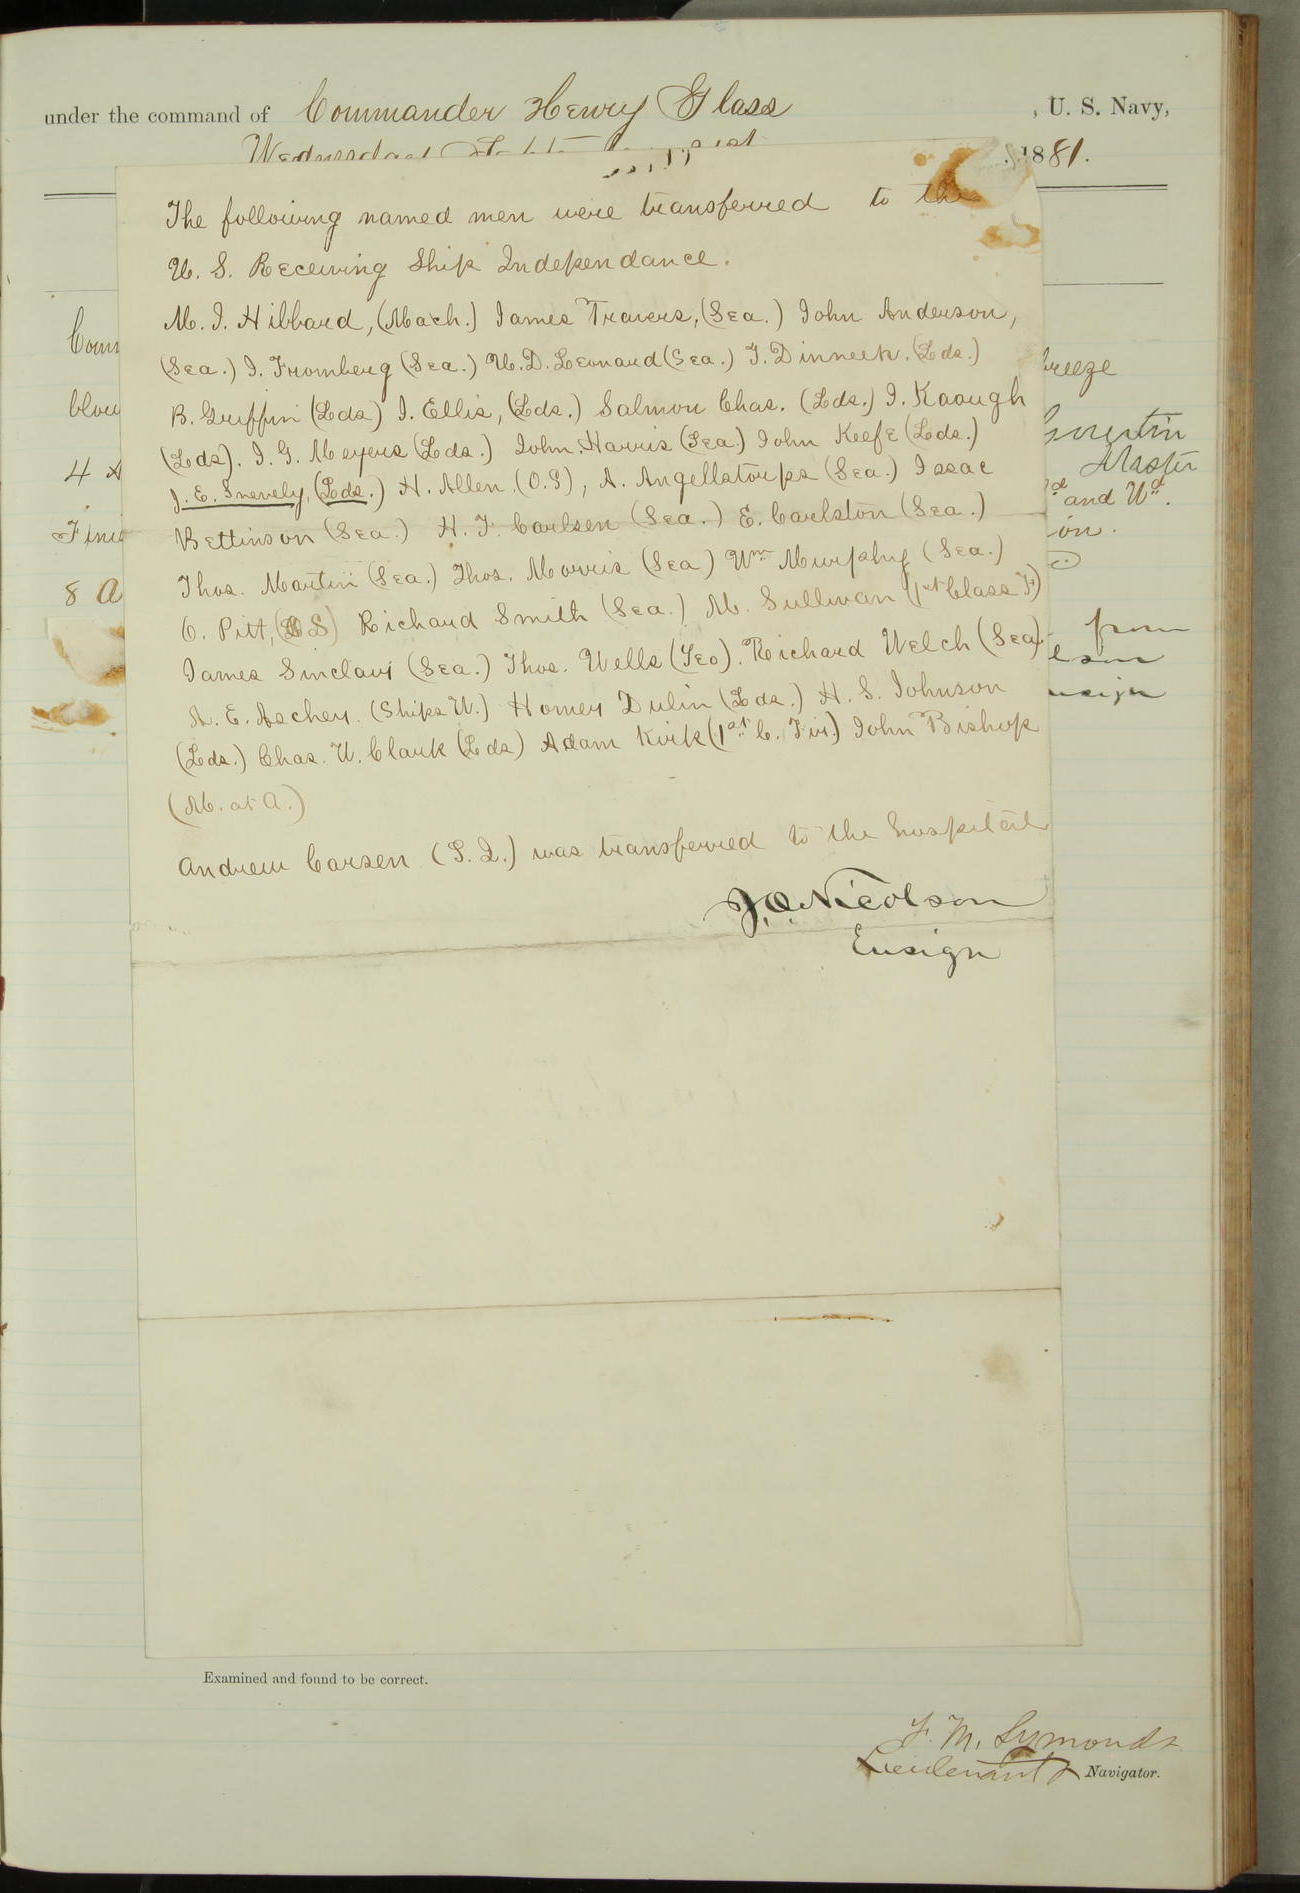 under the command of Commander Henry Glass , U. S. Navy,
Wednesday 1881.
The following named men were transferred to the
U. S. Receiving Ship Independance.
M. J. Hibbard, (Mach.) James Travers, (Sea.) John Anderson,
(Sea.) J. Fromberg (Sea.) W. D. Leonard (Sea.) T. Dinneen. (Lds.)
B. Griffin (Lds) J. Ellis, (Lds.) Salmon Chas. (Lds.) J. Kaough
(Lds). J. G. Meyers (Lds.) John Harris (Sea.) John Keefe (Lds.)
J. E. Snevely, (Lds.) H. Allen (O.S), A. Angellstorps (Sea.) Issac
Bettinson (Sea.) H. F. Carlsen (Sea.) E. Carlston (Sea.)
Thos. Martin (Sea.) Thos. Morris (Sea) Wm Murphy (Sea.)
O. Pitt, (O S) Richard Smith (Sea.) M. Sullivan (1st Class F)
James Sinclair (Sea.) Thos. Wells (Yeo). Richard Welch (Sea).
A. E. Ascher. (Ships W.) Homer Dulin (Lds.) H. S. Johnson
(Lds.) Chas. W. Clark (Lds) Adam Kirk (1st C. Fir.) John Bishop
(M. at A.)
Andrew Carsen (S. I.) was transferred to the hospital
J. O. Nicolson
Ensign
Com
blow
4 A
Finis
8 a
breeze
Master
and Wd.
ion.
from
lson
nsign
Examined and found to be correct.
F. M. Symonds
Lieutenant & Navigator.